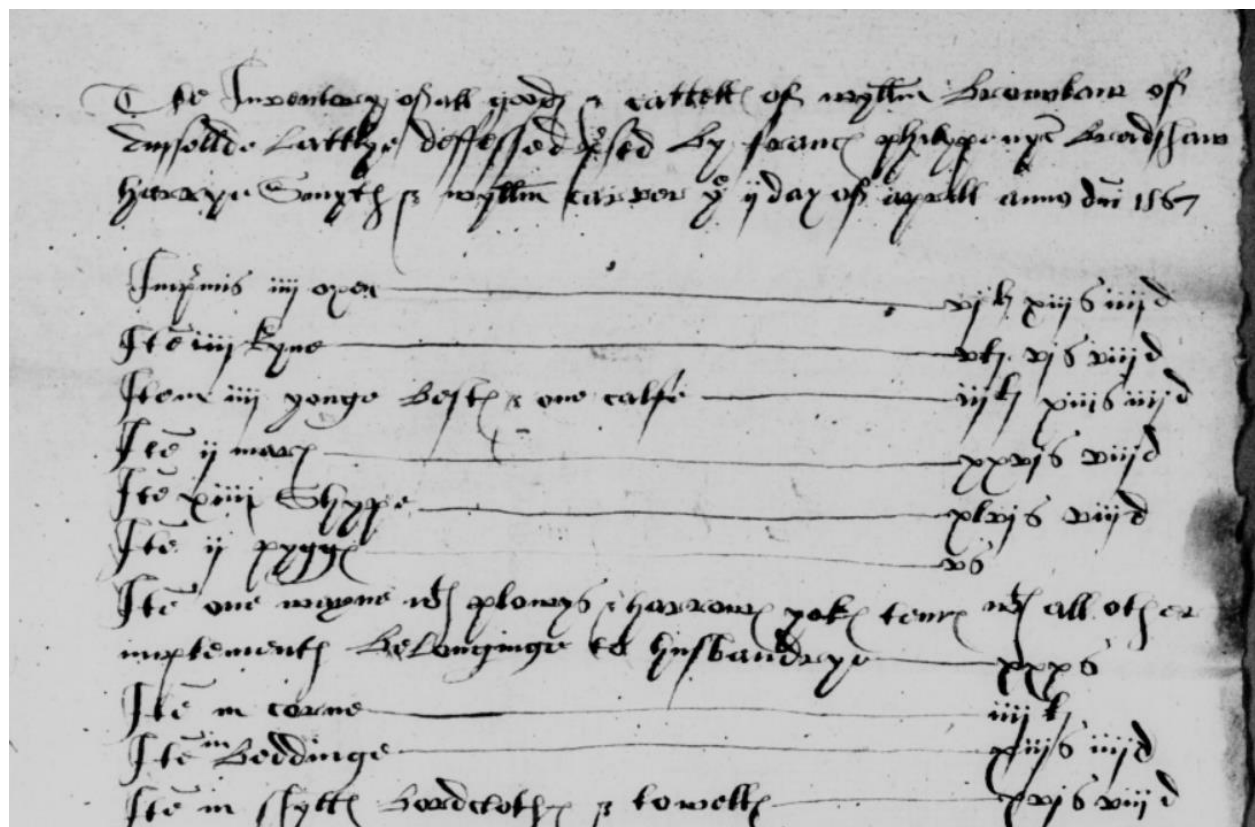 The Inventory of all goods & cattells of wyllm Bromlam of
Lattlye dessessed By franc phelyppe Bradshaw
Harrye Smyth & wyllm carver ye ij day of aprell anno dni 1567
Imprimis iiij oxen vj li xiij s iiij d
Itē iiij kyne v li vj s viij d
Item iiij yonge Bests & one calfe iij li xiij s iiij d
Itē ij mares xxvj s viij d
Itē xiiij Shype xlvj s viij d
Itē ij pyggs v s
Itē one wayne wth plowys & harrows yoks tems wth all other
implements Belonginge to husbandrye xxx s
Itē in corne iiij li
Itē in Beddinge xiij s iiij d
Itē in shytts Bordcloths & towells xvj s viij d